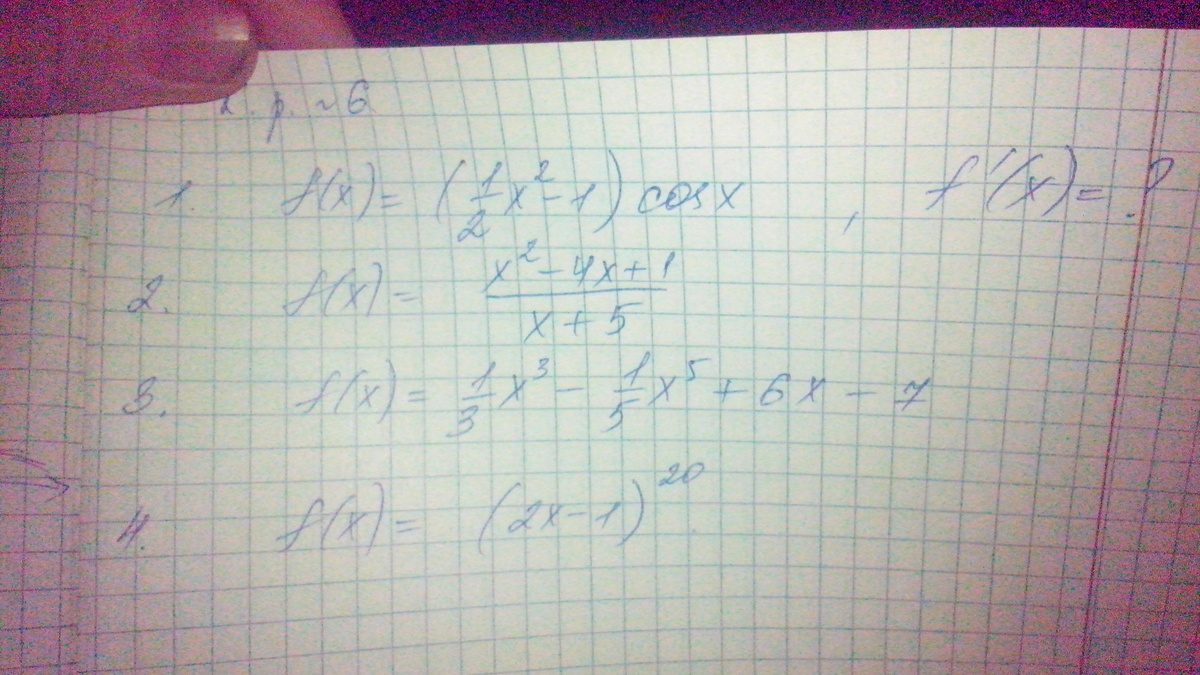 р. ~ 6
1. f(x) = (1/2 x² - 1) cos x , f'(x) = ?
2. f(x) = (x² - 4x + 1)/(x + 5)
3. f(x) = 1/3 x³ - 1/5 x⁵ + 6x - 7
4. f(x) = (2x - 1)²⁰